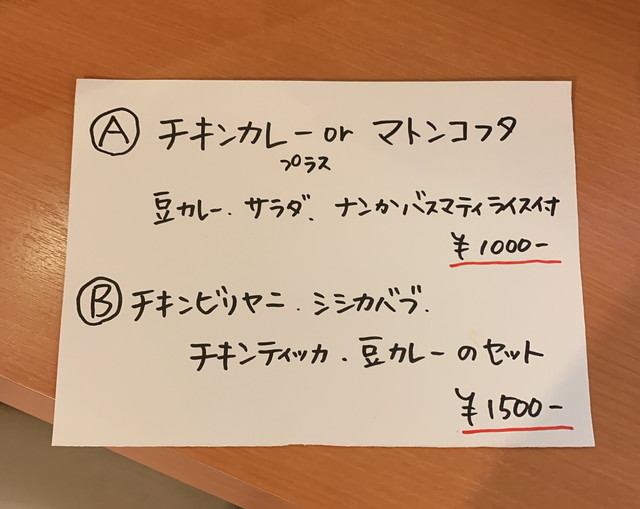 Ⓐ チキンカレー or マトンコフタ
プラス
豆カレー、サラダ、ナンかバスマティライス付
¥1000-
Ⓑ チキンビリヤニ、シシカバブ、
チキンティッカ、豆カレーのセット
¥1500-